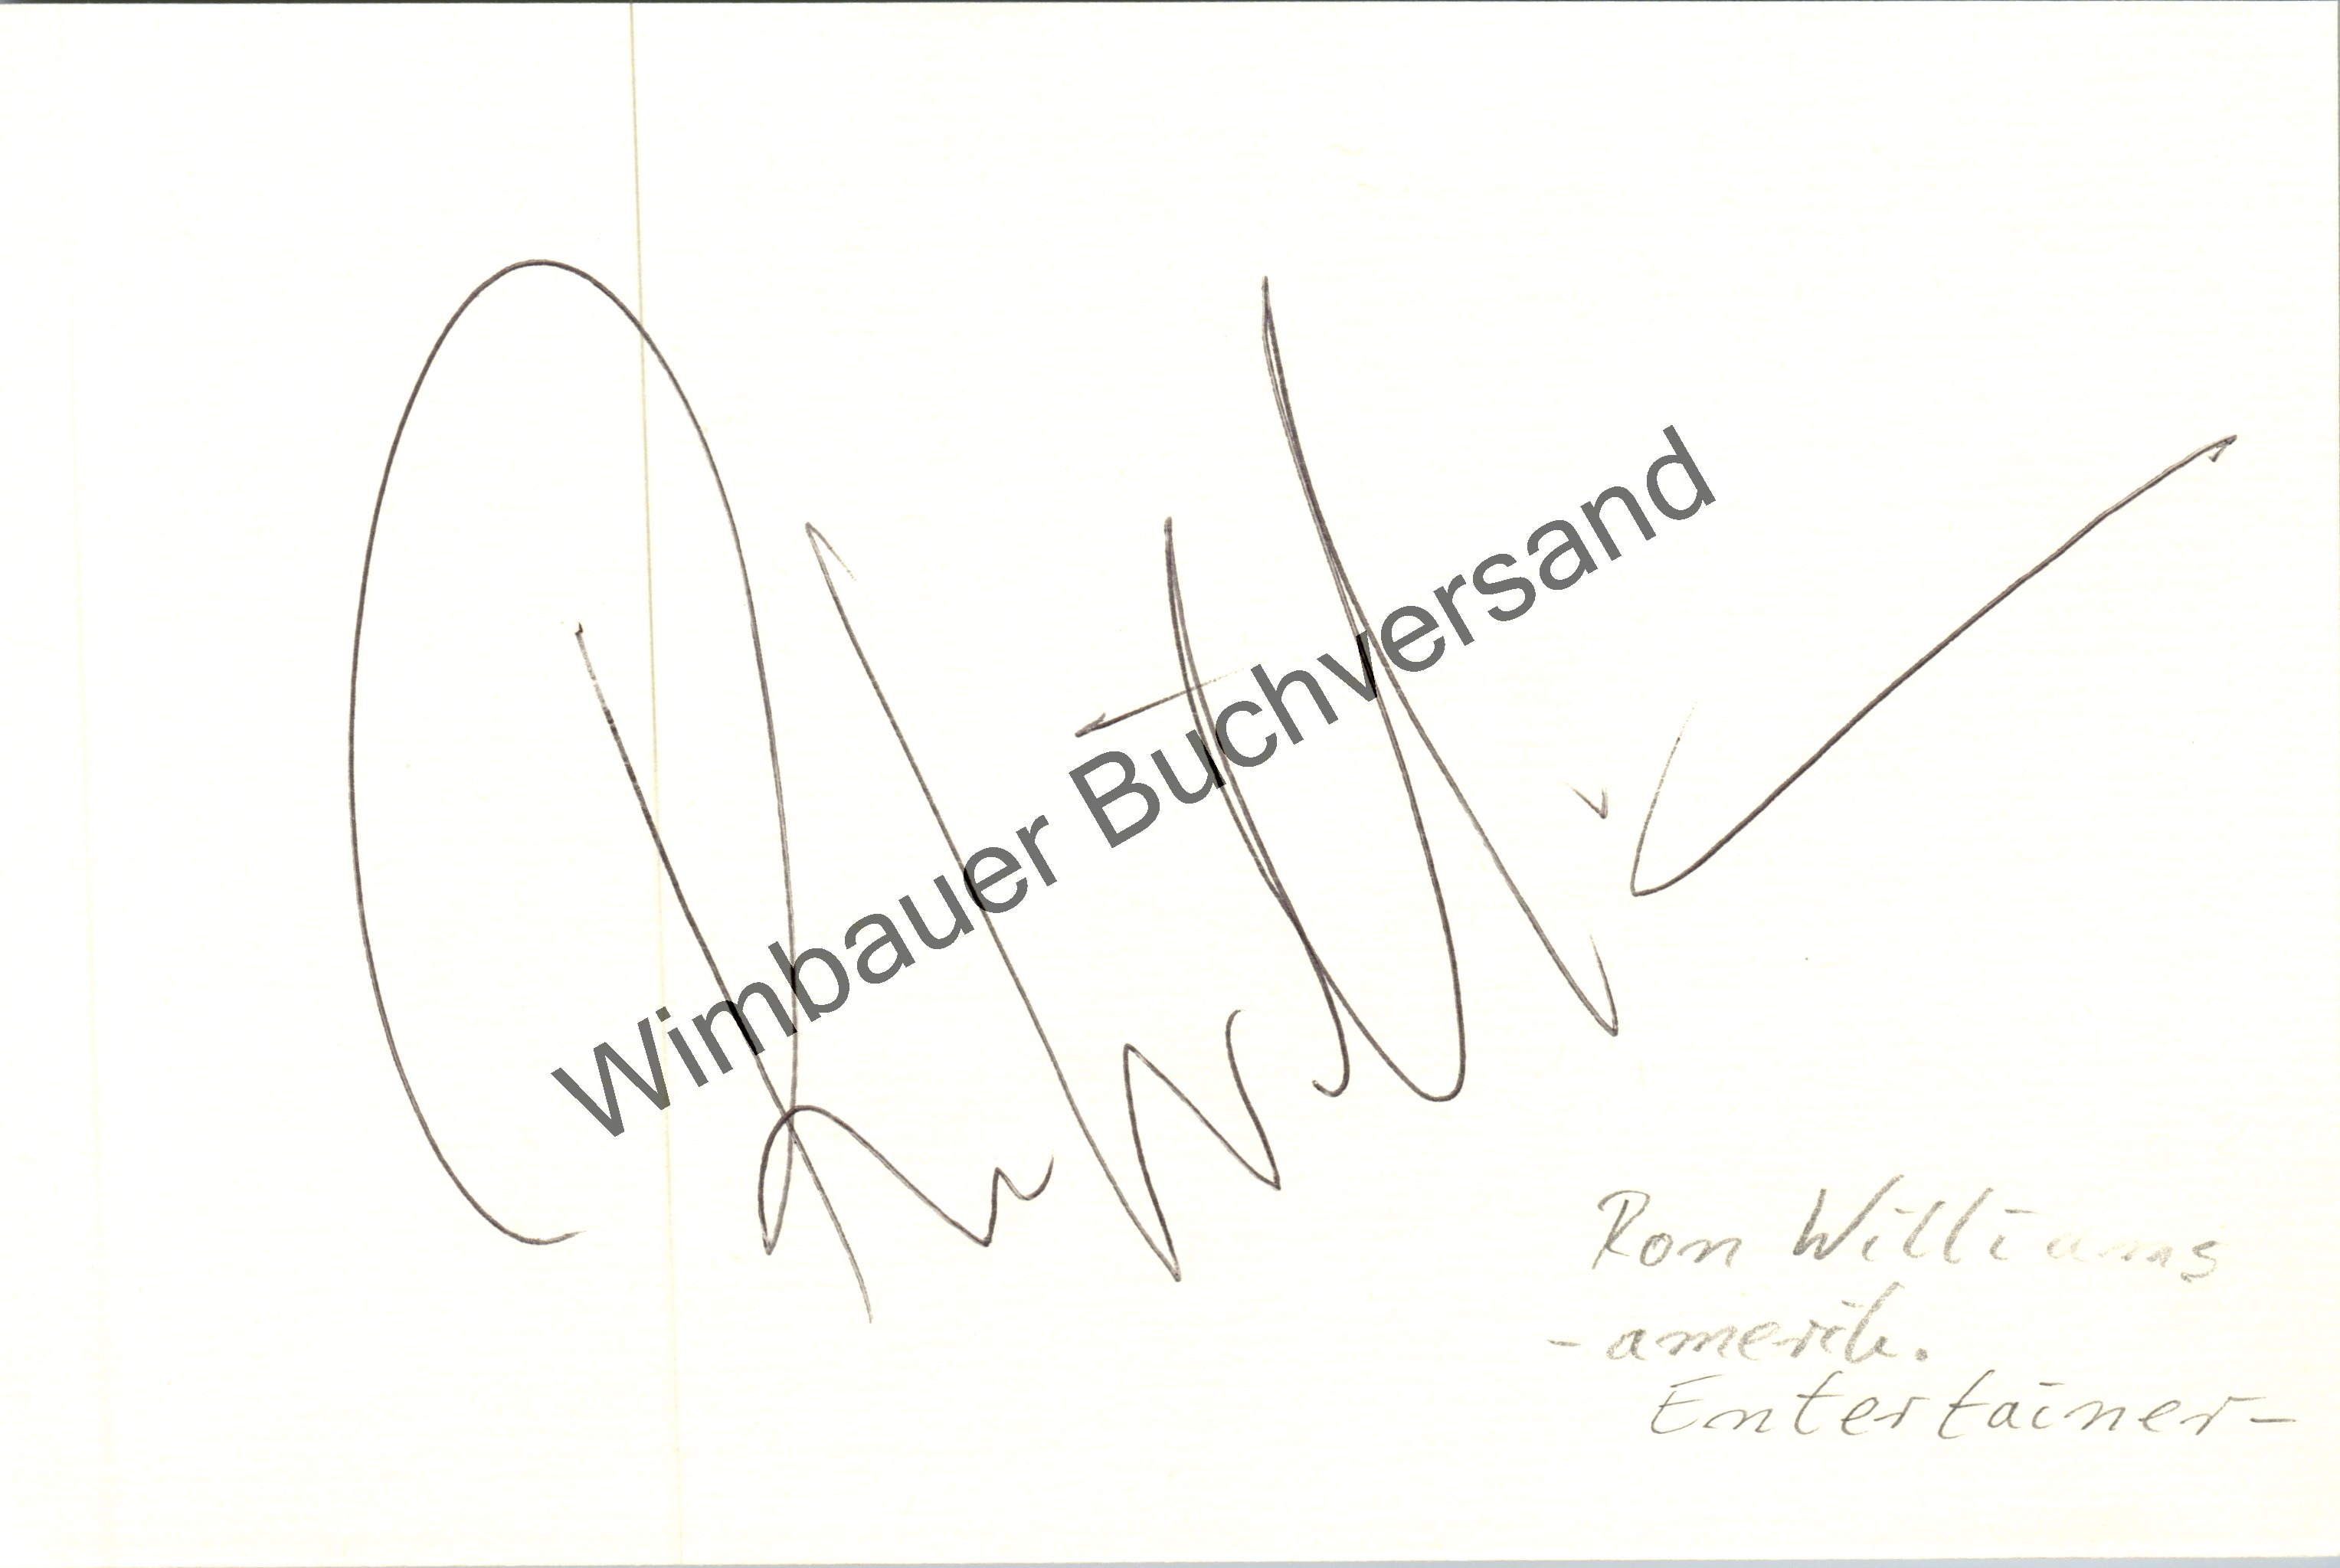 Wimbauer Buchversand
Ron Williams
- amerik.
Entertainer -